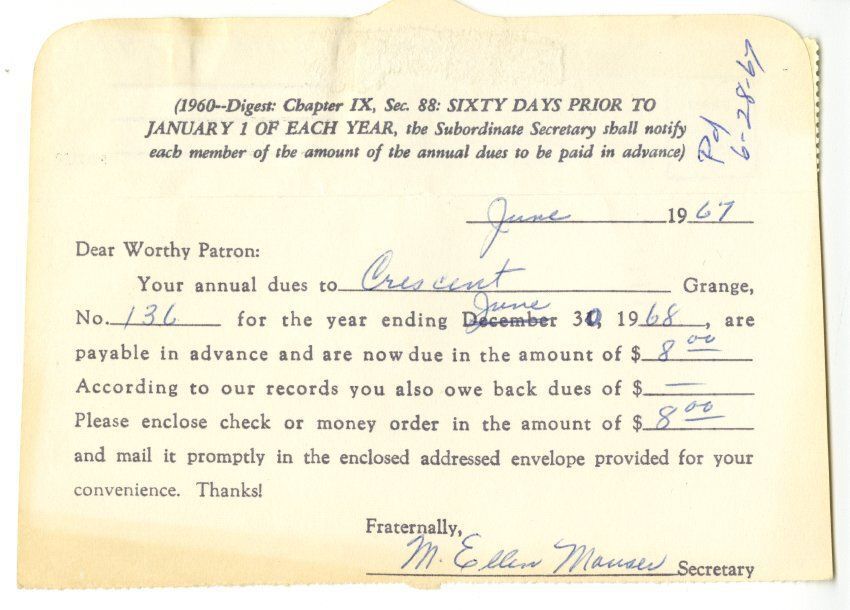 (1960--Digest: Chapter IX, Sec. 88: SIXTY DAYS PRIOR TO
JANUARY 1 OF EACH YEAR, the Subordinate Secretary shall notify
each member of the amount of the annual dues to be paid in advance)
Pd
6-28-67
June 1967
Dear Worthy Patron:
Your annual dues to Crescent Grange,
June
No. 136 for the year ending December 30, 1968, are
payable in advance and are now due in the amount of $ 8 00
According to our records you also owe back dues of $ —
Please enclose check or money order in the amount of $ 8 00
and mail it promptly in the enclosed addressed envelope provided for your
convenience. Thanks!
Fraternally,
M. Ellen Mauser Secretary